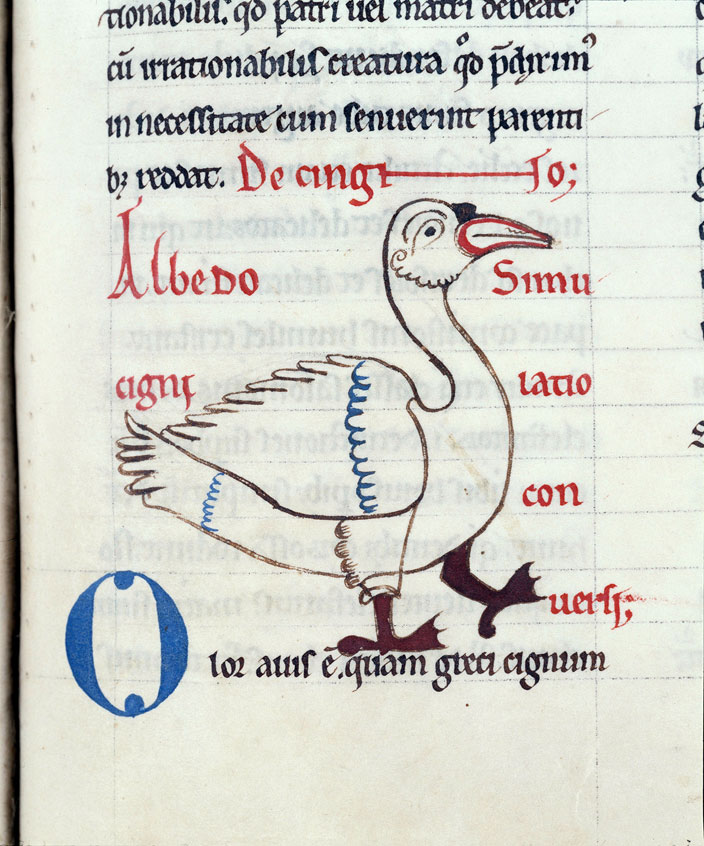 tionabiliſ. qđ patri uel matri debeat;
cū irrationabiliſ creatura qđ p̄diximꝰ
in neceſſitate cum ſenuerint parenti
bꝫ reddat. De cingi Io;
Albedo Simu
cigni latio
con
uerſi;
Olor auiſ ē. quam greci cignum